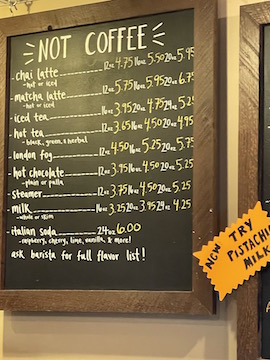 NOT COFFEE
- chai latte 12oz 4.75 16oz 5.50 20oz 5.95
- hot or iced
- matcha latte 12oz 5.75 16oz 5.95 20oz 6.75
- hot or iced
iced tea 16oz 3.95 20oz 4.75 24oz 5.25
- hot tea 12oz 3.65 16oz 4.50 20oz 4.95
- black, green, & herbal
- london fog 12oz 4.50 16oz 5.25 20oz 5.75
- hot chocolate 12oz 3.95 16oz 4.50 20oz 5.25
- plain or palla
- steamer 12oz 3.75 16oz 4.50 20oz 5.25
- milk 16oz 3.25 20oz 3.95 24oz 4.25
- whole or skim
- italian soda 24oz 6.00
- raspberry, cherry, lime, vanilla, & more!
ask barista for full flavor list!
NOW TRY
PISTACHIO
MILK